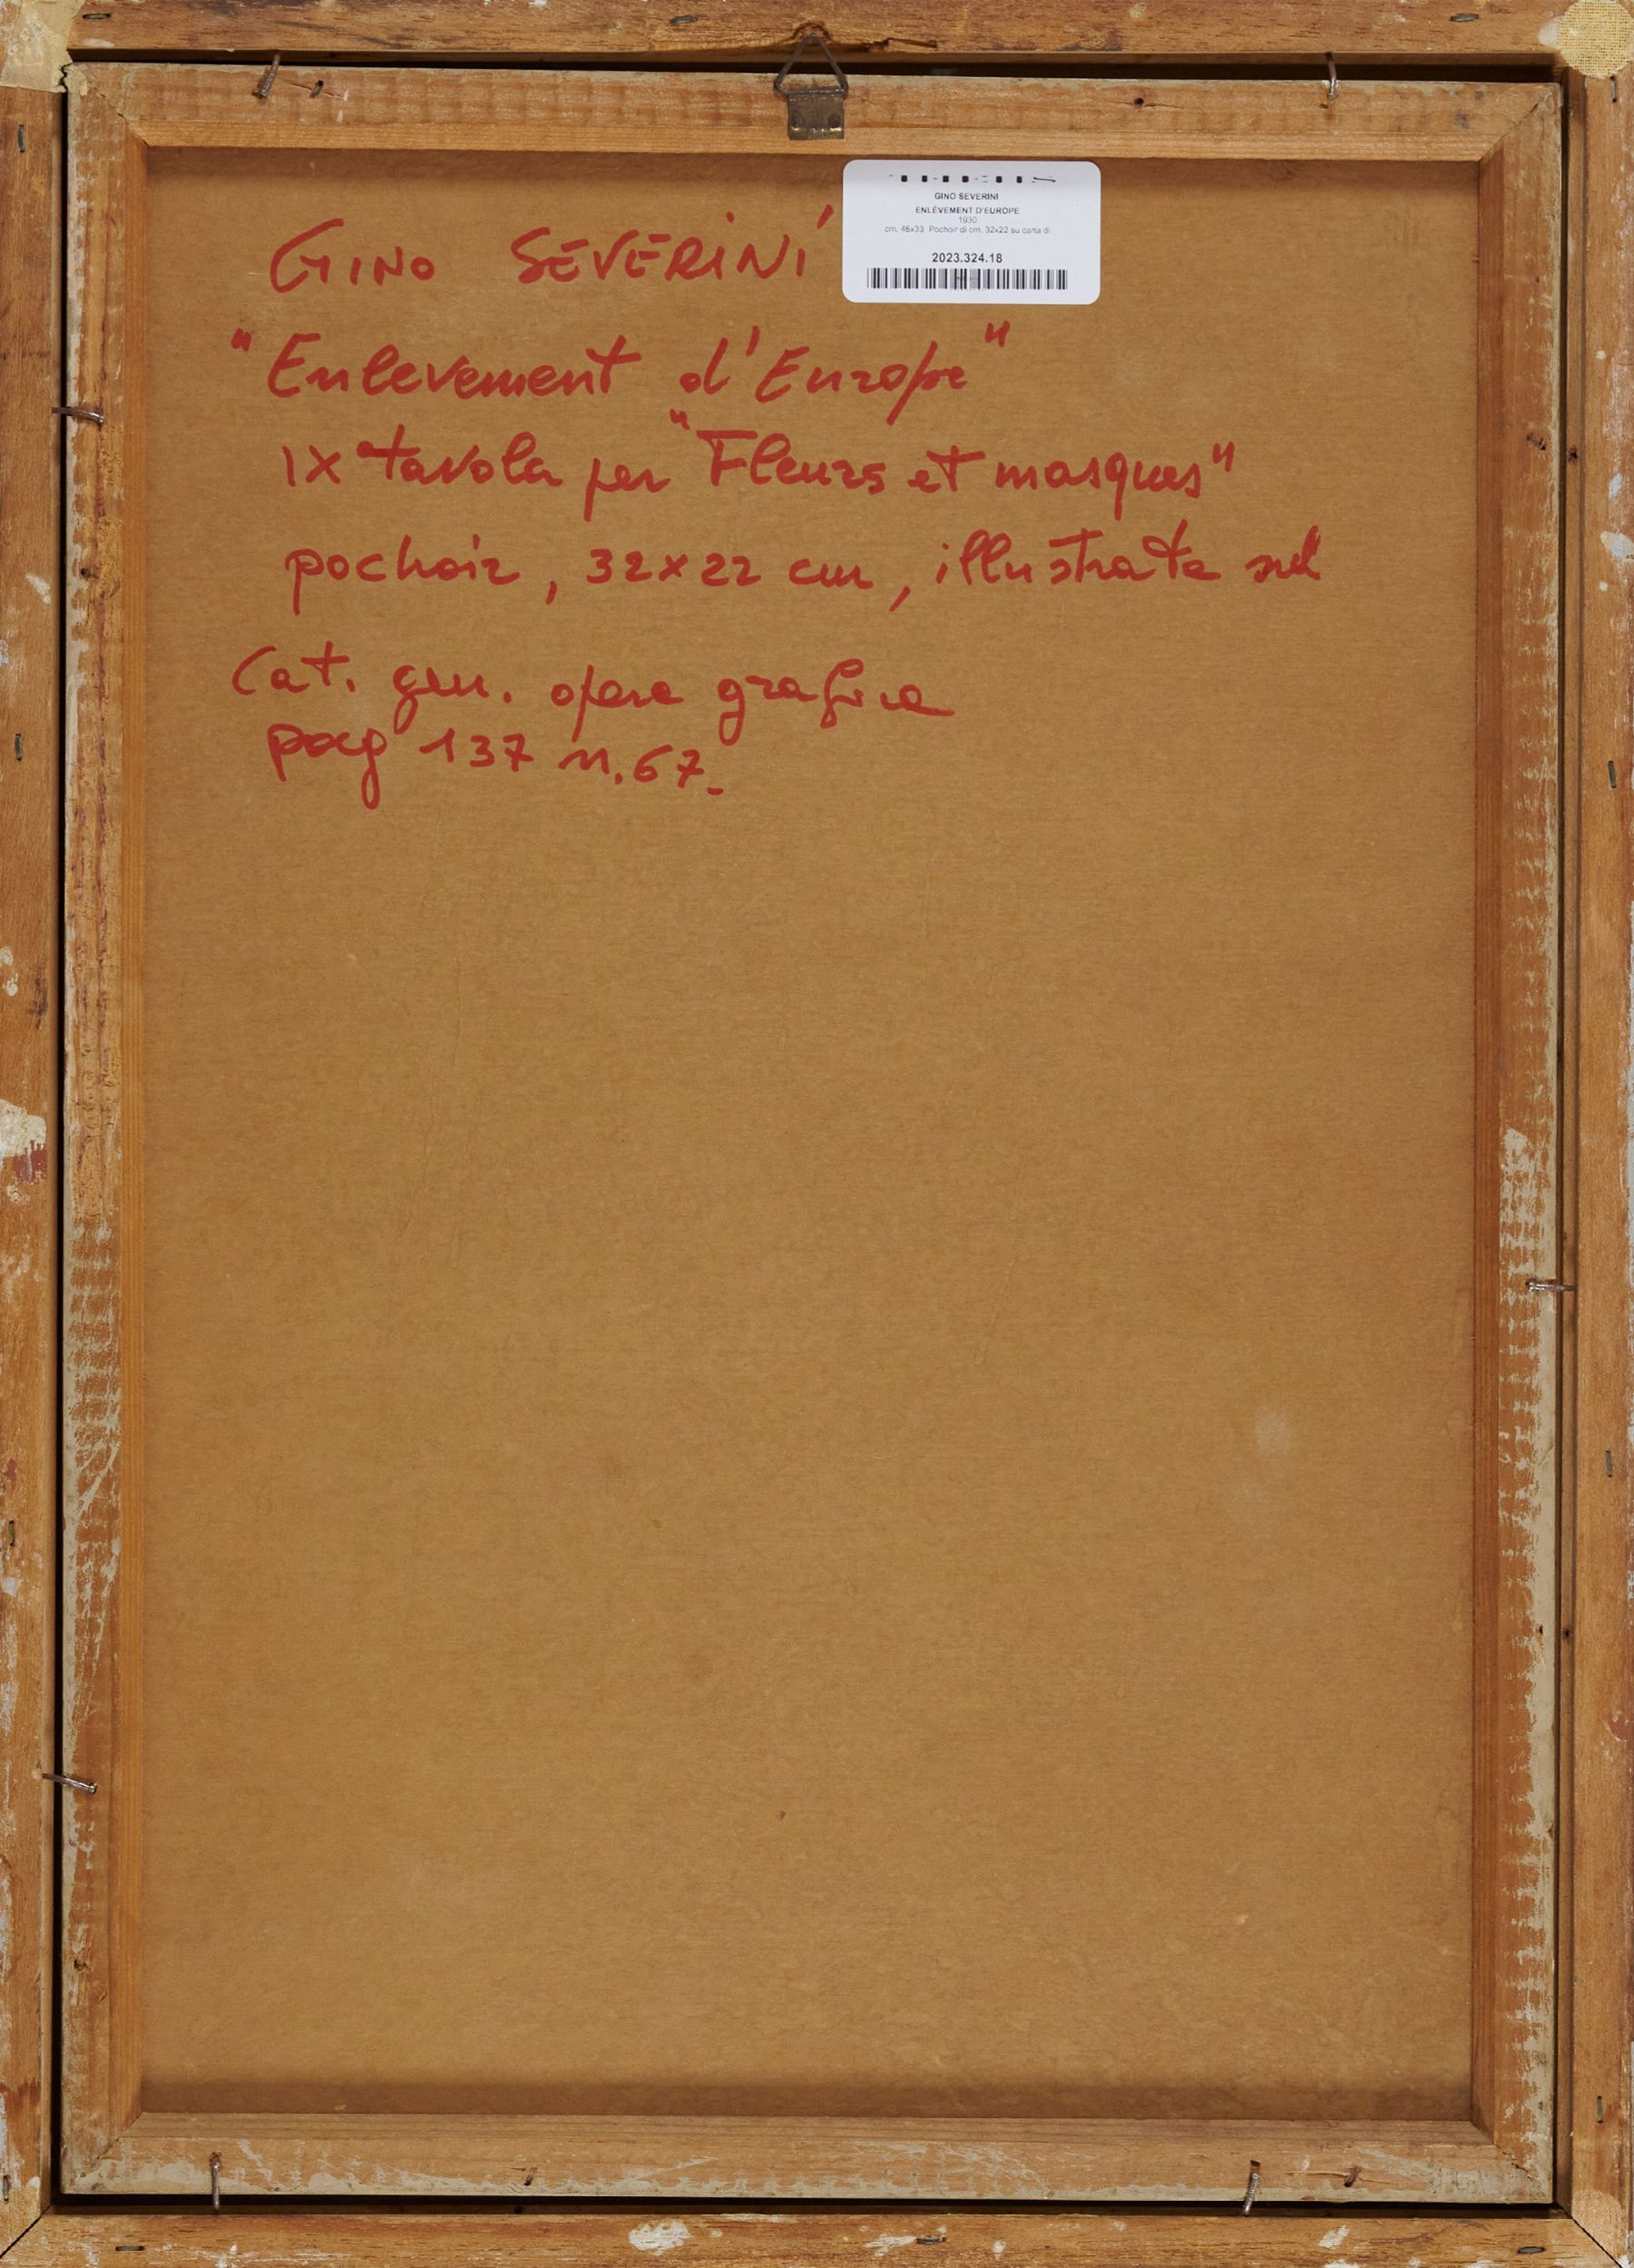 GINO SEVERINI
ENLÈVEMENT D'EUROPE
1930
cm. 46x33 Pochoir di cm. 32x22 su carta di
2023.324.18
GINO SEVERINI
"Enlevement d'Europe"
IX tavola per "Fleurs et masques"
pochoir, 32x22 cm, illustrata sul
Cat. gen. opera grafica
pag 137 n.67.